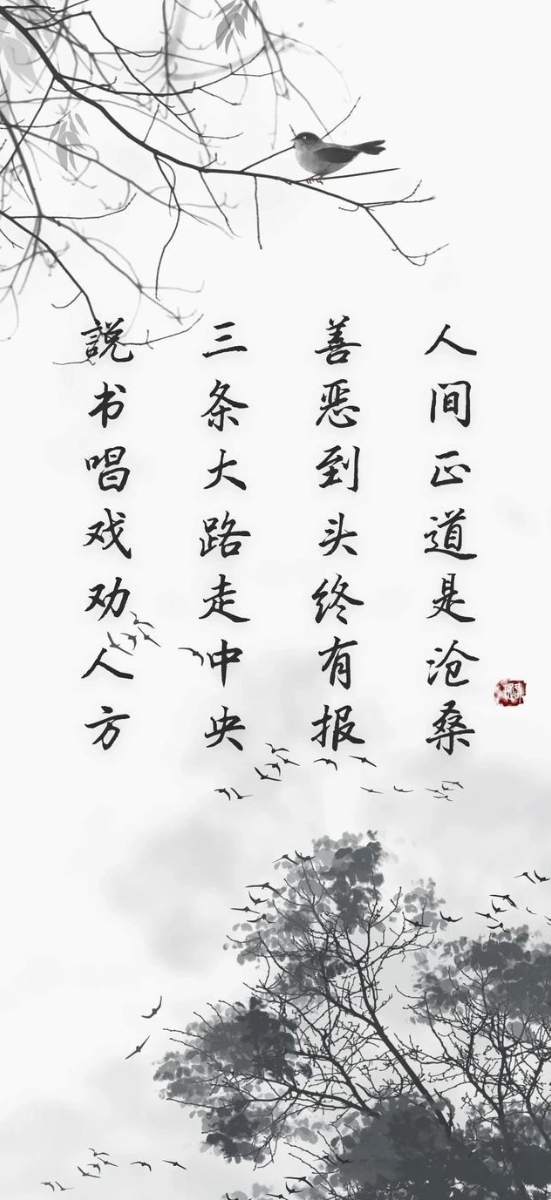 説书唱戏劝人方
三条大路走中央
善恶到头终有报
人间正道是沧桑